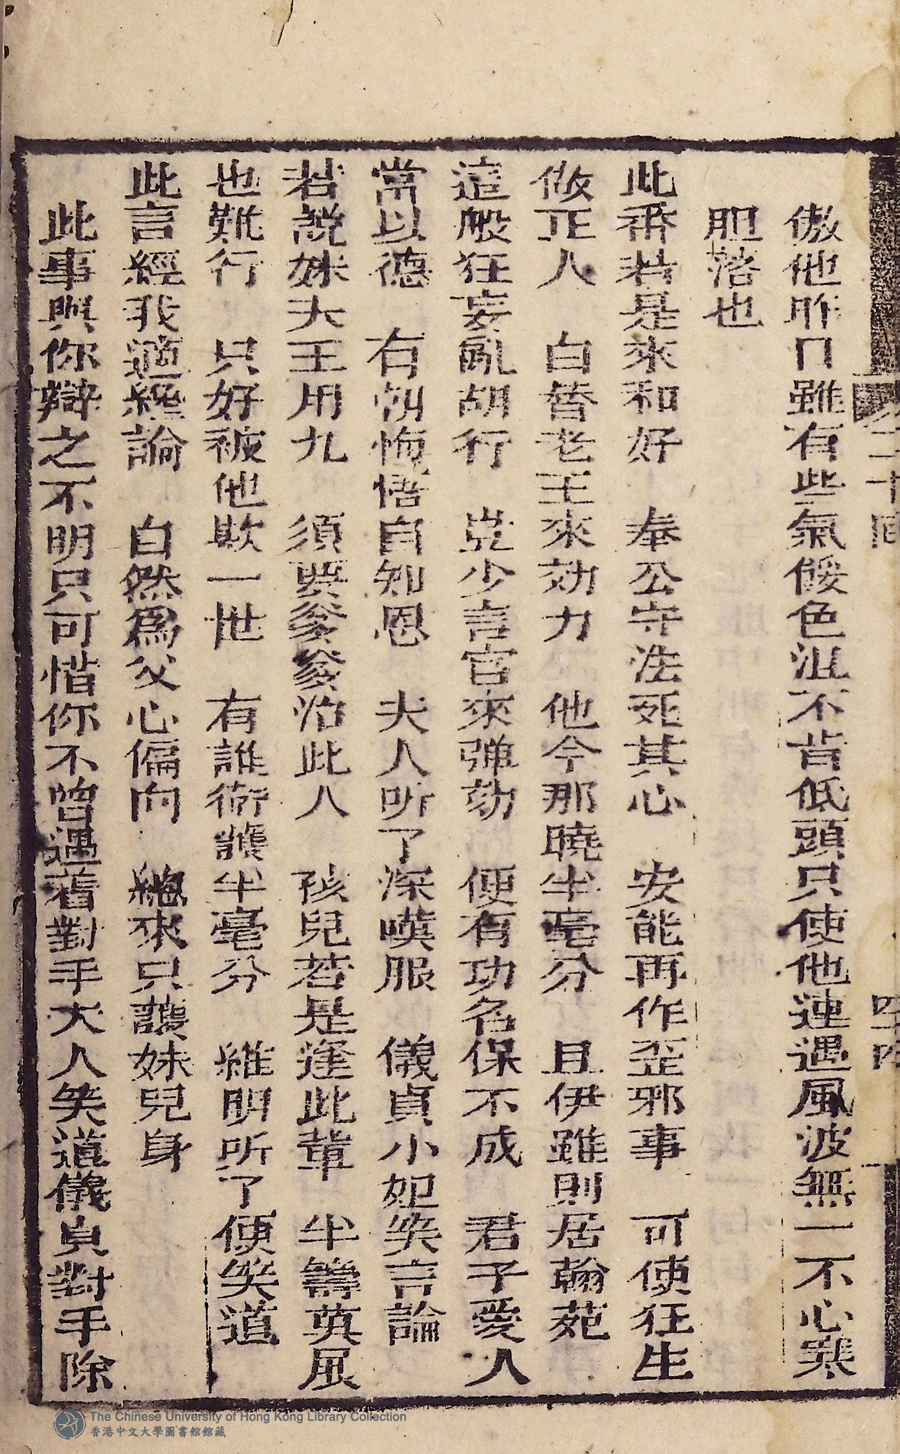 二十回
四十四
傲他昨日雖有些氣餒色沮不肯低頭只使他連遇風波無一不心寒
胆落也
此番若是來和好 奉公守法死其心 安能再作歪邪事 可使狂生
做正人 白替老王來効力 他今那曉半毫分 且伊雖則居翰苑
這般狂妄亂胡行 豈少言官來弹劾 便有功名保不成 君子愛人
當以德 右朝悔悟自知恩 夫人听了深嘆服 儀貞小姐笑言論
若說妹夫王用九 須要爹爹治此人 孩兒若是逢此輩 半籌莫展
也難行 只好被他欺一世 有誰衛護半毫分 維明听了便笑道
此言經我適纔論 自然爲父心偏向 總來只護妹兒身
此事與你辯之不明只可惜你不曾遇着對手夫人笑道儀貞對手除
The Chinese University of Hong Kong Library Collection
香港中文大學圖書館館藏